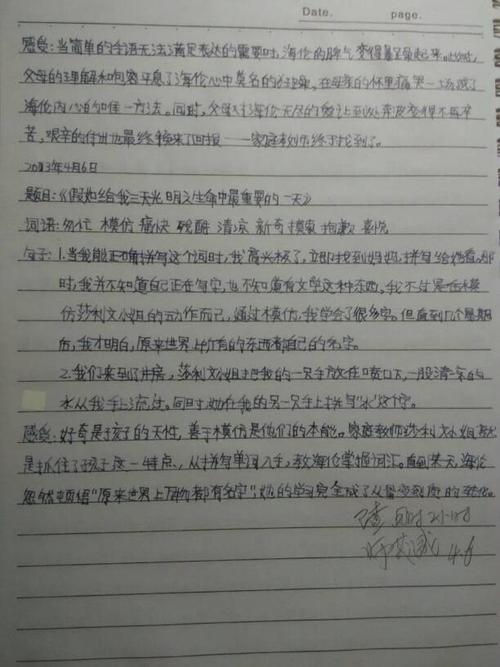 Date. page.
感受:当简单的手语无法满足表达的需要时,海伦的脾气变得暴躁起来。此时,
父母的理解和包容平息了海伦心中莫名的烦躁。在母亲的怀里痛哭一场成了
海伦内心的唯一方法。同时,父母对海伦无尽的爱让到处奔波变得不再辛
苦,艰辛的付出也最终换来了回报——家庭教师终于找到了。
2013年4月6日
题目:《假如给我三天光明之生命中最重要的一天》
词语:匆忙 模仿 痛快 残酷 清凉 新奇 摸索 抱歉 喜悦
句子:1.当我能正确拼写这个词时,我高兴极了,立即找到妈妈,拼写给她看。那
时,我并不知道自己正在写字,也不知道有文字这种东西。我不过是在模
仿莎利文小姐的动作而已,通过模仿,我学会了很多字。但直到几个星期
后,我才明白,原来世界上所有的东西都有自己的名字。
2.我们来到了井房,莎利文小姐把我的一只手放在喷口下,一股清凉的
水从我手上流过。同时她在我的另一只手上拼写“水”这个字。
感受:好奇是孩子的天性,善于模仿是他们的本能。家庭教师莎利文小姐就
是抓住了孩子这一特点,从拼写单词入手,教海伦掌握词汇。直到某天,海伦
忽然顿悟“原来世界上万物都有名字”,她的学习完全成了从量变到质的变化。
4.8